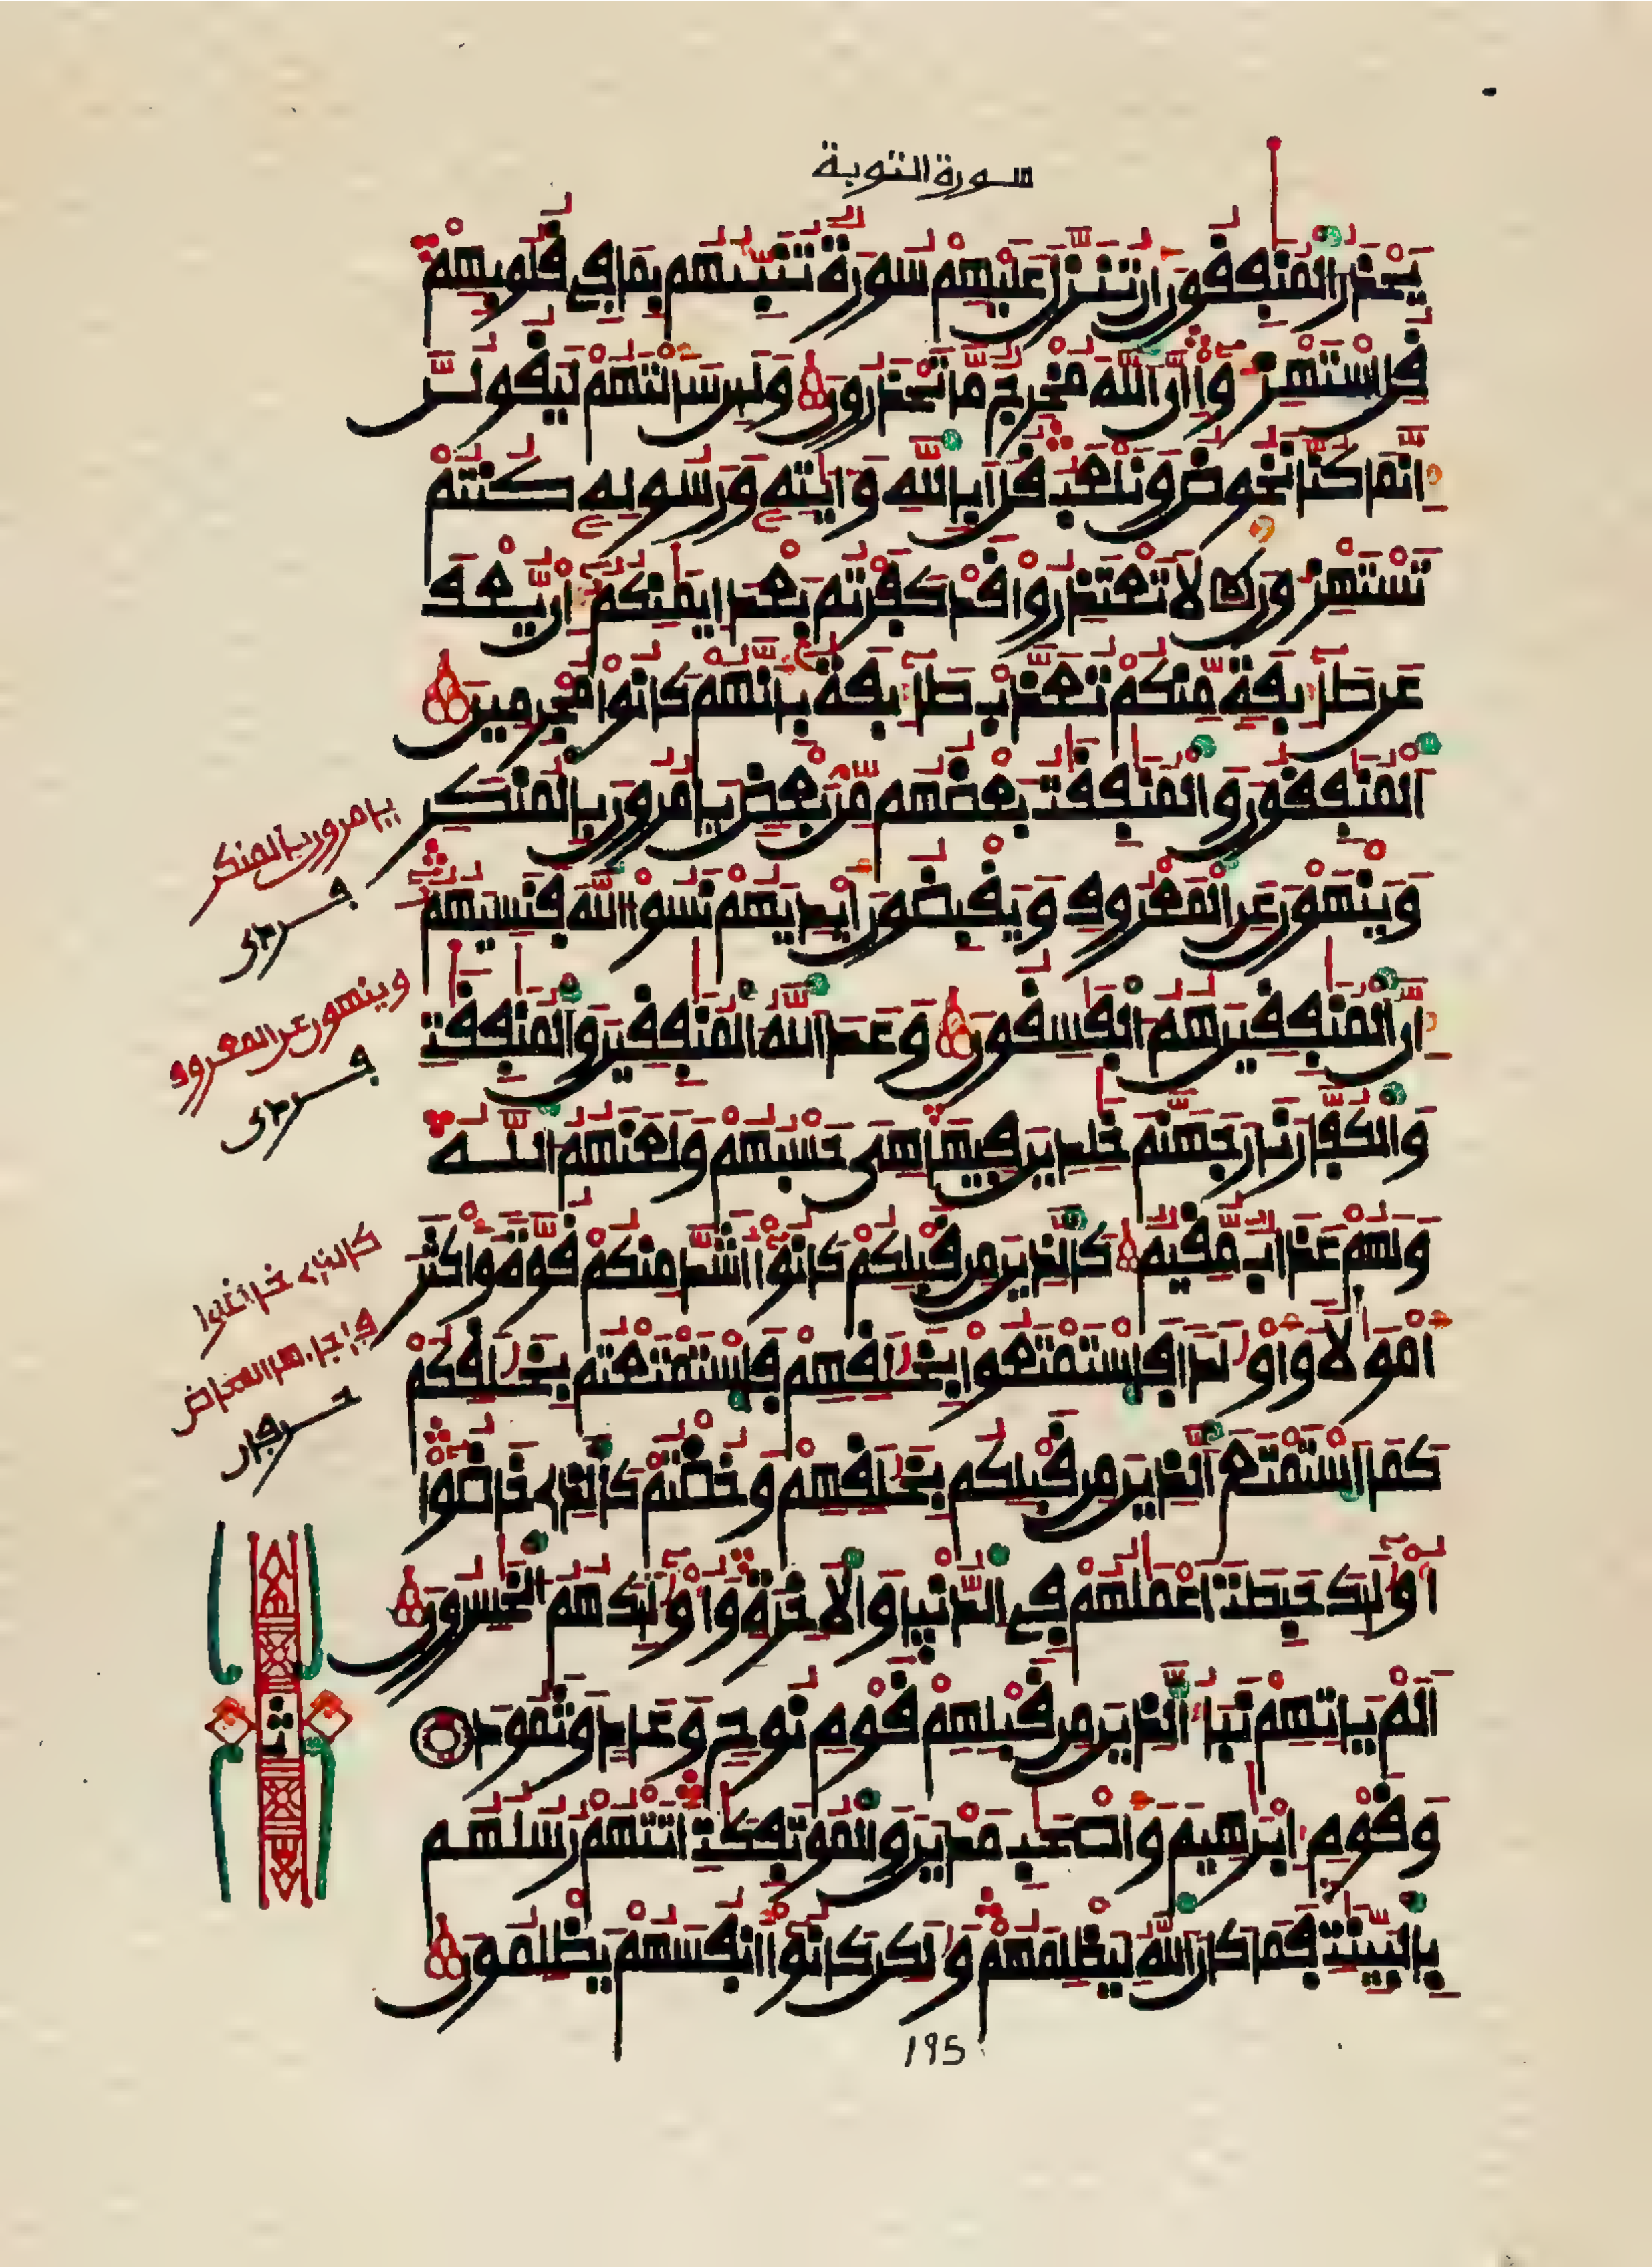 سورة التوبة
يحذر المنفقون أن تنزل عليهم سورة تنبئهم بما في قلوبهم
قل استهزءوا إن الله مخرج ما تحذرون ولئن سألتهم ليقولن
إنما كنا نخوض ونلعب قل أبالله وءايته ورسوله كنتم
تستهزءون لا تعتذروا قد كفرتم بعد إيمنكم إن يعف
عن طائفة منكم تعذب طائفة بأنهم كانوا مجرمين
المنفقون والمنفقت بعضهم من بعض يأمرون بالمنكر
وينهون عن المعروف ويقبضون أيديهم نسوا الله فنسيهم
إن المنفقين هم الفسقون وعد الله المنفقين والمنفقت
والكفار نار جهنم خلدين فيها هي حسبهم ولعنهم الله
ولهم عذاب مقيم كالذين من قبلكم كانوا أشد منكم قوة وأكثر
أمولا وأولدا فاستمتعوا بخلقهم فاستمتعتم بخلقكم
كما استمتع الذين من قبلكم بخلقهم وخضتم كالذي خاضوا
أولئك حبطت أعملهم في الدنيا والأخرة وأولئك هم الخسرون
ألم يأتهم نبأ الذين من قبلهم قوم نوح وعاد وثمود
وقوم إبرهيم وأصحب مدين والمؤتفكت أتتهم رسلهم
بالبينت فما كان الله ليظلمهم ولكن كانوا أنفسهم يظلمون
يأمرون بالمنكر
وينهون عن المعروف
195